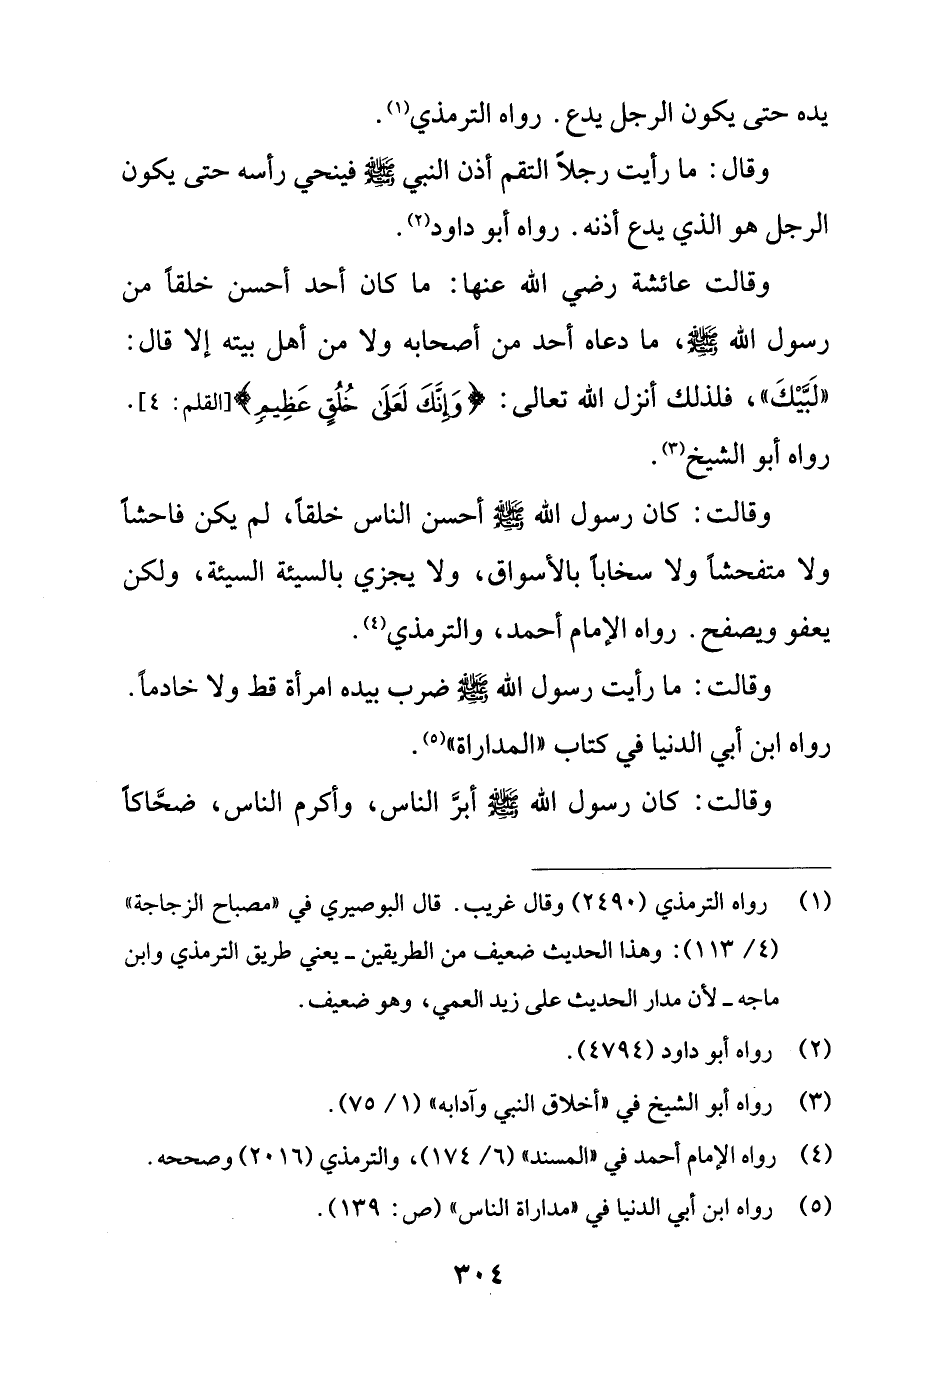 يده حتى يكون الرجل يدع. رواه الترمذي(١).
وقال: ما رأيت رجلاً التقم أذن النبي ﷺ فينحي رأسه حتى يكون
الرجل هو الذي يدع أذنه. رواه أبو داود(٢).
وقالت عائشة رضي الله عنها: ما كان أحد أحسن خلقاً من
رسول الله ﷺ، ما دعاه أحد من أصحابه ولا من أهل بيته إلا قال:
«لَبَّيْكَ»، فلذلك أنزل الله تعالى: ﴿وَإِنَّكَ لَعَلَى خُلُقٍ عَظِيمٍ﴾[القلم: ٤].
رواه أبو الشيخ(٣).
وقالت: كان رسول الله ﷺ أحسن الناس خلقاً، لم يكن فاحشاً
ولا متفحشاً ولا سخاباً بالأسواق، ولا يجزي بالسيئة السيئة، ولكن
يعفو ويصفح. رواه الإمام أحمد، والترمذي(٤).
وقالت: ما رأيت رسول الله ﷺ ضرب بيده امرأة قط ولا خادماً.
رواه ابن أبي الدنيا في كتاب «المداراة»(٥).
وقالت: كان رسول الله ﷺ أبرَّ الناس، وأكرم الناس، ضحَّاكاً
(١) رواه الترمذي (٢٤٩٠) وقال غريب. قال البوصيري في «مصباح الزجاجة»
(٤/ ١١٣): وهذا الحديث ضعيف من الطريقين ـ يعني طريق الترمذي وابن
ماجه ـ لأن مدار الحديث على زيد العمي، وهو ضعيف.
(٢) رواه أبو داود (٤٧٩٤).
(٣) رواه أبو الشيخ في «أخلاق النبي وآدابه» (١/ ٧٥).
(٤) رواه الإمام أحمد في «المسند» (٦/ ١٧٤)، والترمذي (٢٠١٦) وصححه.
(٥) رواه ابن أبي الدنيا في «مداراة الناس» (ص: ١٣٩).
٣٠٤